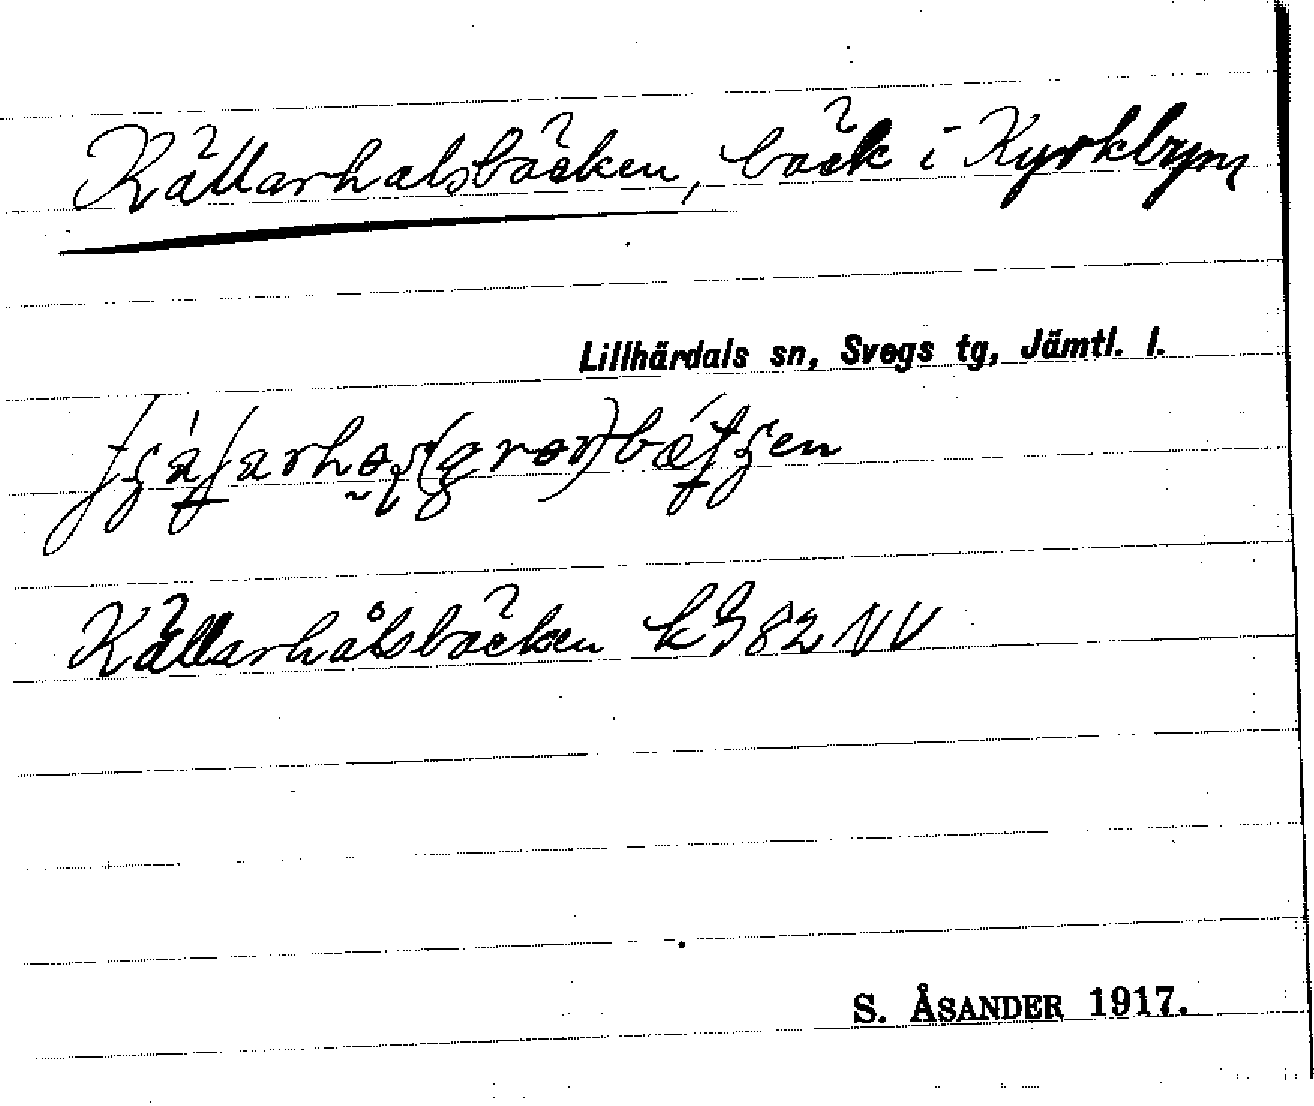 Källarhalsbäcken, bäck i Kyrkbyn
Lillhärdals sn, Svegs tg, Jämtl. l.
Källarhålsbäcken kg 82 NV
S. ÅSANDER 1917.